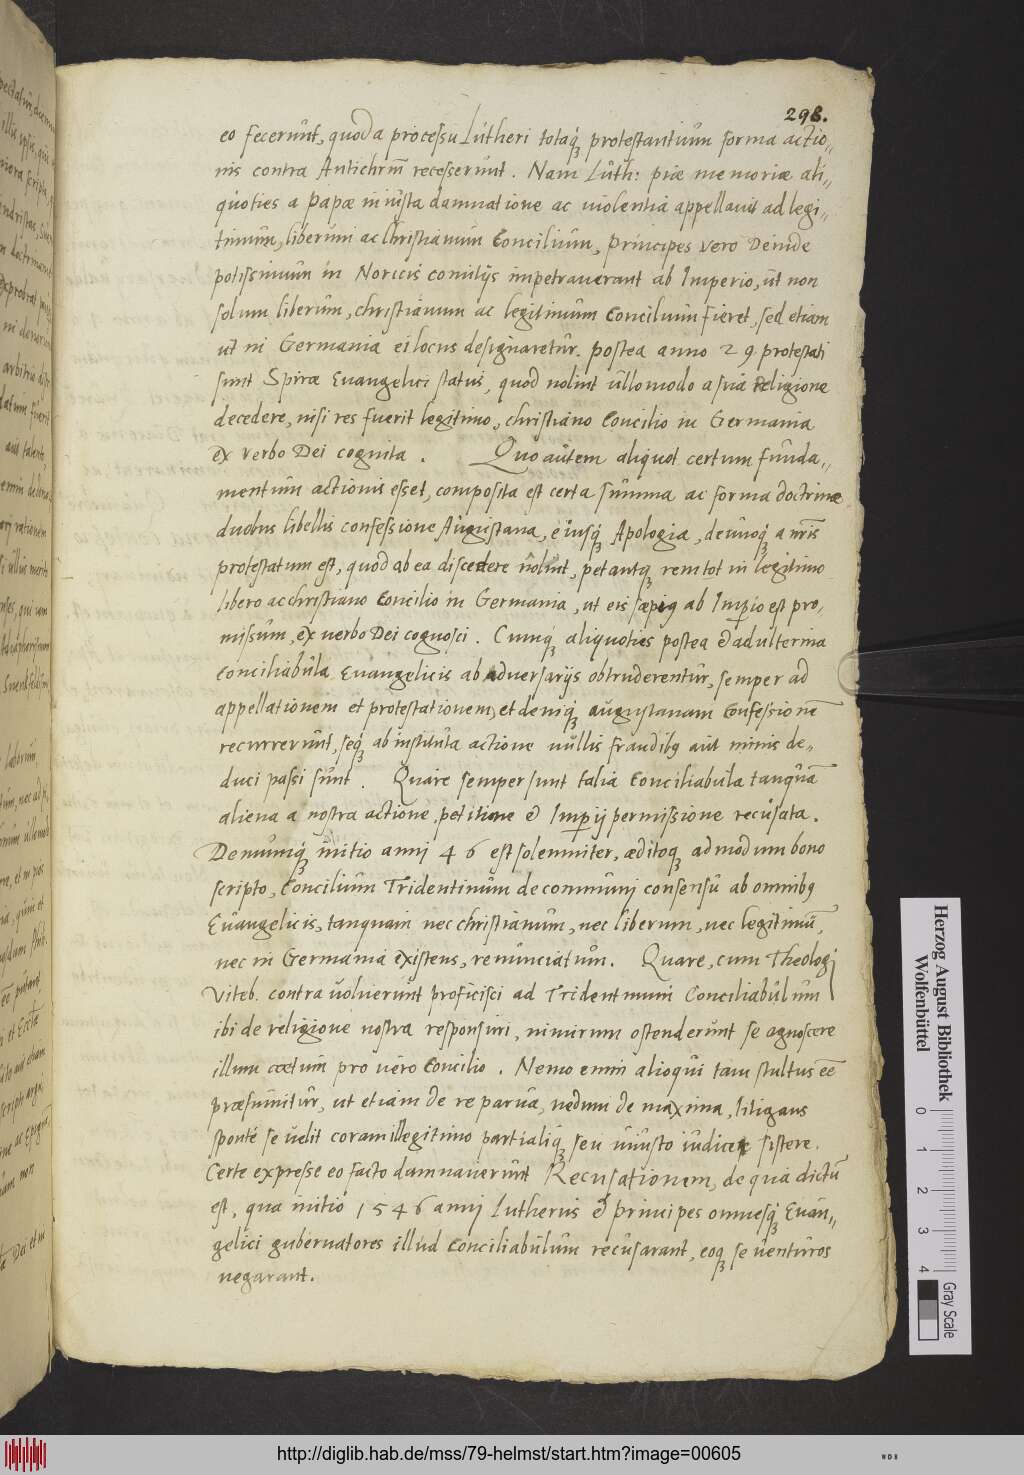 298.
eo fecerunt, quod a processu Lutheri totaq́ꝫ protestantium forma actio„
nis contra Antichrm̃ recesserunt. Nam Luth: piæ memoriæ ali„
quoties a Papæ iniusta damnatione ac violentia appellauit ad legi„
timum, liberum ac Christianum Concilium, Principes vero Deinde
potissimum in Noricis comitijs impetrauerant ab Imperio, ut non
solum liberum, christianum ac legitimum Concilium fieret, sed etiam
ut in Germania ei locus designaretur. postea anno 29. protestati
sunt Spiræ Euangelici status, quod nolint ullo modo a sua Religione
decedere, nisi res fuerit legitimo, christiano Concilio in Germania
ex verbo Dei cognita. Quo autem aliquot certum funda„
mentum actionis esset, composita est certa summa ac forma doctrinæ
duobus libellis confessione Augustana, eiusq́ꝫ Apologia, denuoq́ꝫ a nr̃is
protestatum est, quod ab ea discedere nolint, petantq́ꝫ rem tot in legitimo
libero ac christiano Concilio in Germania, ut eis sæpiꝰ ab Imꝑio est pro„
missum, ex uerbo Dei cognosci. Cumq́ꝫ aliquoties postea & adulterina
Conciliabula Euangelicis ab adversarijs obtruderentur, semper ad
appellationem et protestationem, et deniq́ꝫ augustanam Confessionẽ
recurrerunt, seq́ꝫ ab instituta actione nullis fraudibꝰ aut minis de„
duci passi sunt. Quare semper sunt talia Conciliabula tanquã
aliena a nostra actione, petitione & Imꝑij permissione recusata.
Denuniq́ꝫ initio anni 46 est solenniter, æditoq́ꝫ admodum bono
scripto, Concilium Tridentinum de communi consensu ab omnibꝰ
Euangelicis, tanquam nec christianum, nec liberum, nec legitimũ,
nec in Germania existens, renunciatum. Quare, cum Theologi
Viteb. contra uoluerunt proficisci ad Tridentinum Conciliabulum
ibi de religione nostra responsuri, nimirum ostenderunt se agnoscere
illum cœtum pro uero Concilio. Nemo enim alioqui tam stultus eẽ
præsumitur, ut etiam de re parua, nedum de maxima, litigans
sponte se uelit coram illegitimo partialiq́ꝫ seu iniusto iudice sistere.
Certe expresse eo facto damnauerunt Recusationem, de qua dictũ
est, qua initio 1546 anni Lutherus & Principes omnesq́ꝫ Euan„
gelici gubernatores illud Conciliabulum recusarant, eoq́ꝫ se uenturos
negarant.
Herzog August Bibliothek
Wolfenbüttel
0 1 2 3 4
Gray Scale
http://diglib.hab.de/mss/79-helmst/start.htm?image=00605
WDB